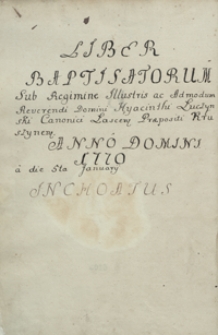 LIBER
BAPTISATORUM
Sub Regimine Illustris ac Admodum
Reverendi Domini Hyacinthi Luczyn
ski Canonici Lascen: Præpositi Kru
szynen:
ANNO DOMINI
1770
á die 5ta January
INCHOATUS